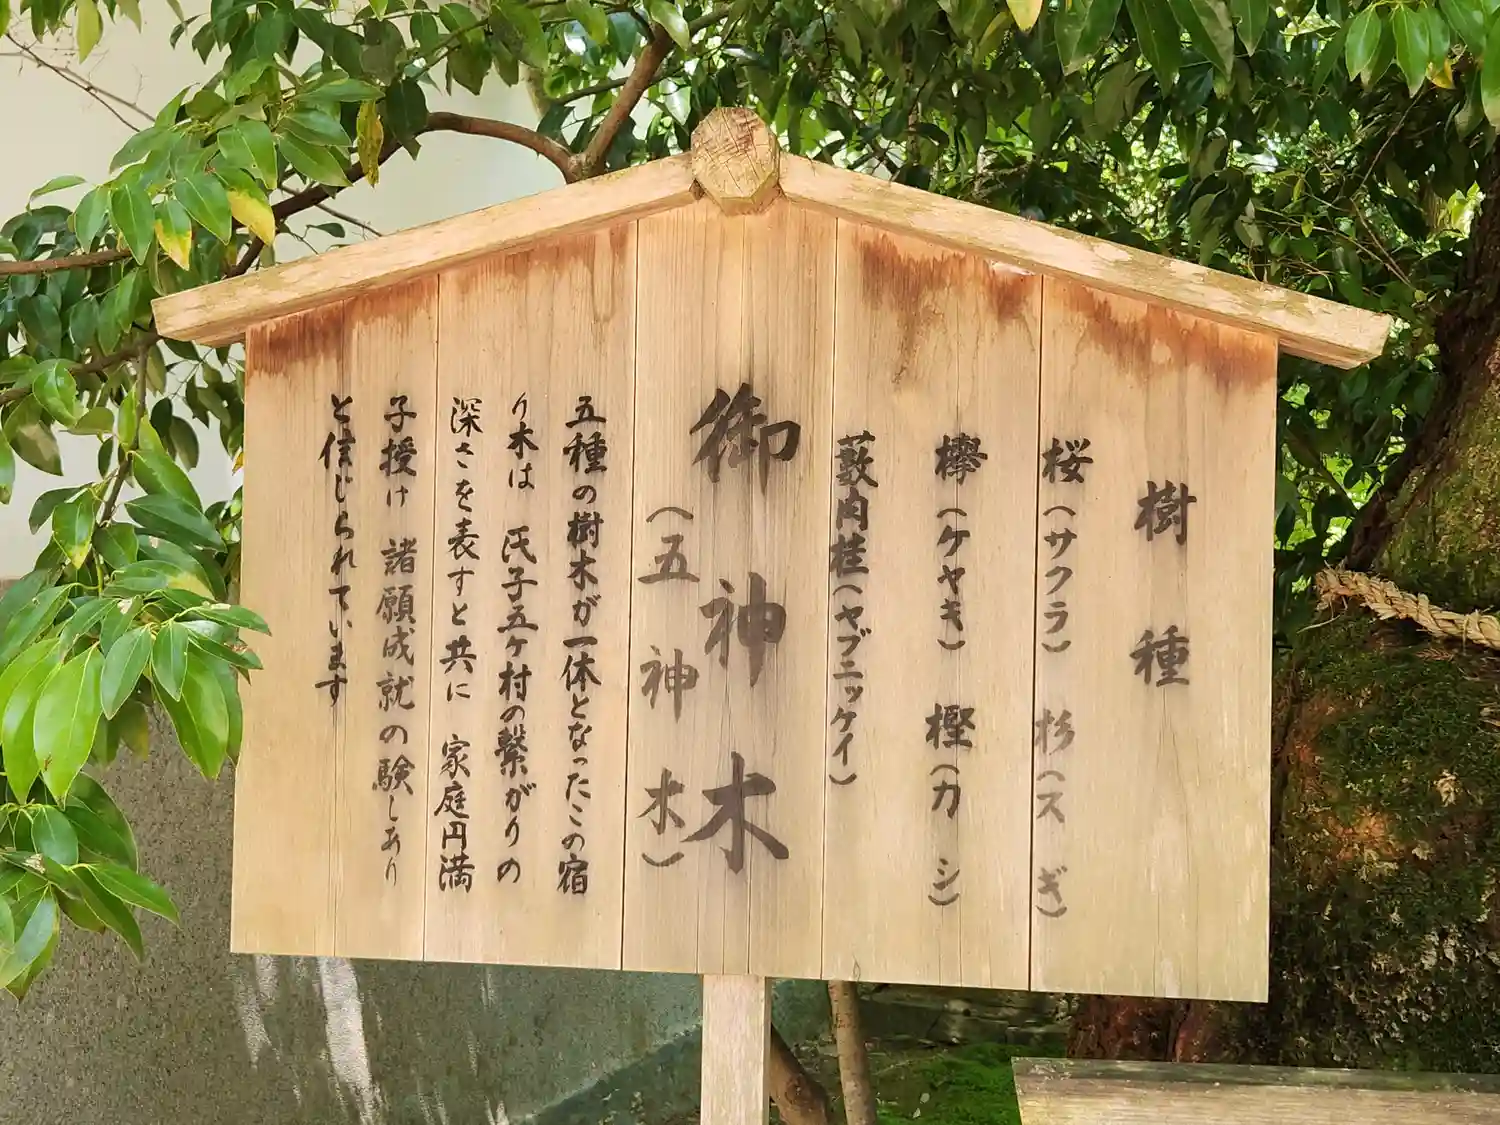 樹種
桜(サクラ) 杉(スぎ)
欅(ケヤキ) 樫(カシ)
藪肉桂(ヤブニッケイ)
御神木
(五神木)
五種の樹木が一体となったこの宿
り木は 氏子五ケ村の繋がりの
深さを表すと共に 家庭円満
子授け 諸願成就の験しあり
と信じられています